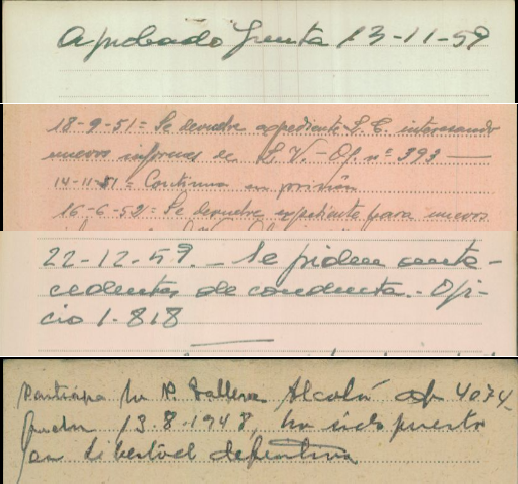 Aprobado Junta 13-11-59
18-9-51= Se devuelve expediente L.C. interesando
nuevos informes de L.V.- Of. nº 393 —
14-11-51= Continua en prisión
16-6-52= Se devuelve expediente para nuevos
22-12-59._ Se piden ante-
cedentes de conducta.- Ofi-
cio 1.818
Participa la P. Talleres Alcalá of 4074
fecha 13.8.1948, ha sido puesto
en Libertad definitiva